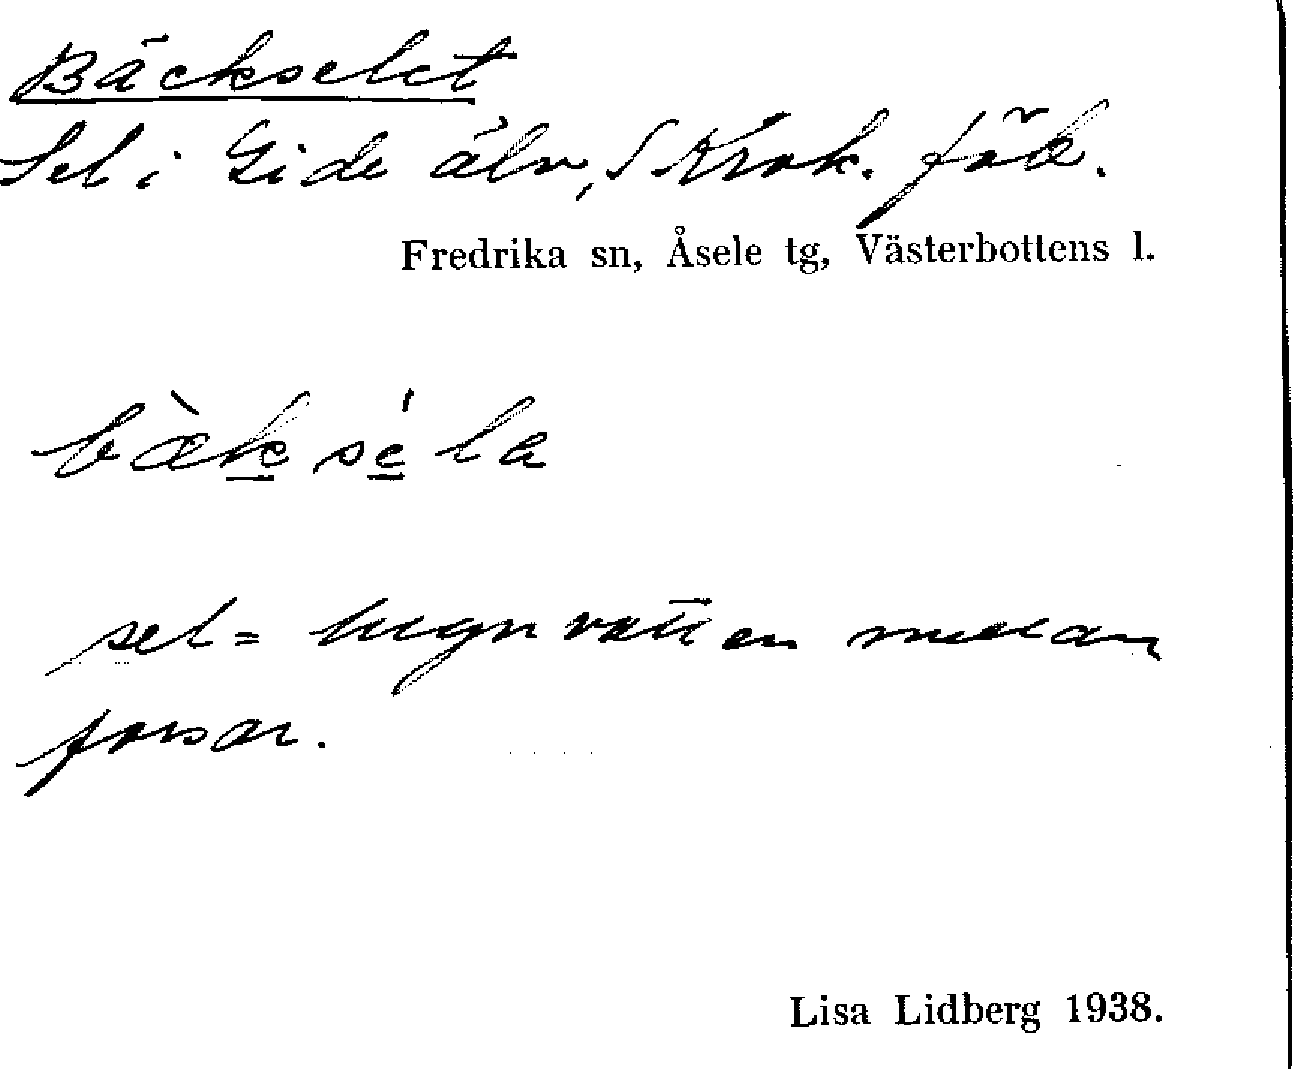 Bäckselet
Sel i Gide älv, S Krok. fäb.
Fredrika sn, Åsele tg, Västerbottens l.
bæ̀kse̍la
sel = lugnvatten mellan
forsar.
Lisa Lidberg 1938.